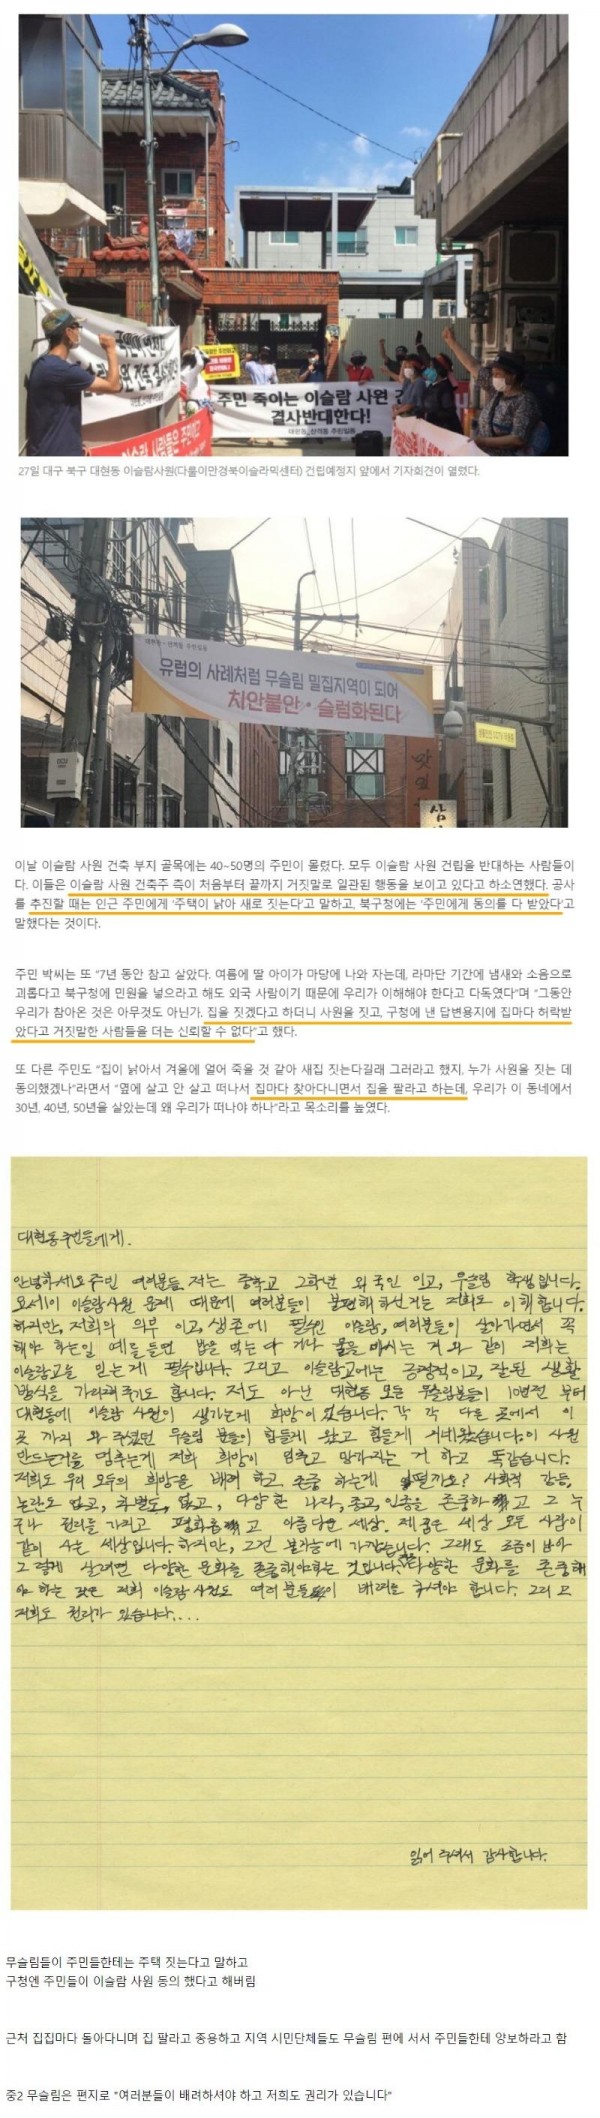 주민 죽이는 이슬람 사원 건
결사반대한다!
대현동, 산격동 주민일동
27일 대구 북구 대현동 이슬람사원(다룰이만경북이슬라믹센터) 건립예정지 앞에서 기자회견이 열렸다.
대현동·산격동 주민일동
유럽의 사례처럼 무슬림 밀집지역이 되어
치안불안·슬럼화된다
이날 이슬람 사원 건축 부지 골목에는 40~50명의 주민이 몰렸다. 모두 이슬람 사원 건립을 반대하는 사람들이
다. 이들은 이슬람 사원 건축주 측이 처음부터 끝까지 거짓말로 일관된 행동을 보이고 있다고 하소연했다. 공사
를 추진할 때는 인근 주민에게 '주택이 낡아 새로 짓는다'고 말하고, 북구청에는 '주민에게 동의를 다 받았다'고
말했다는 것이다.
주민 박씨는 또 "7년 동안 참고 살았다. 여름에 딸 아이가 마당에 나와 자는데, 라마단 기간에 냄새와 소음으로
괴롭다고 북구청에 민원을 넣으라고 해도 외국 사람이기 때문에 우리가 이해해야 한다고 다독였다"며 "그동안
우리가 참아온 것은 아무것도 아닌가. 집을 짓겠다고 하더니 사원을 짓고, 구청에 낸 답변용지에 집마다 허락받
았다고 거짓말한 사람들을 더는 신뢰할 수 없다"고 했다.
또 다른 주민도 "집이 낡아서 겨울에 얼어 죽을 것 같아 새집 짓는다길래 그러라고 했지, 누가 사원을 짓는 데
동의했겠나"라면서 "옆에 살고 안 살고 떠나서 집마다 찾아다니면서 집을 팔라고 하는데, 우리가 이 동네에서
30년, 40년, 50년을 살았는데 왜 우리가 떠나야 하나"라고 목소리를 높였다.
대현동주민들에게.
안녕하세요 주민 여러분들. 저는 중학교 2학년 외국인 이고, 무슬림 학생입니다.
요세이 이슬람사원 문제 때문에 여러분들이 불편해 하신거는 저희도 이해합니다.
하지만, 저희의 의무 이고, 생존에 필수인 이슬람, 여러분들이 살아가면서 꼭
해야 하는일 예를 들면 밥을 먹는다 거나 물을 마시는 거 와 같이 저희는
이슬람교을 믿는게 필수입니다. 그리고 이슬람교에는 긍정적이고, 잘된 생활
방식을 가르쳐 주기도 합니다. 저도 아닌 대현동 모든 무슬림분들이 10년전 부터
대현동에 이슬람 사원이 생기는게 희망이 있습니다. 각 각 다른 곳에서 이
곳 까지 와 주셨던 무슬림 분들이 힘들게 왔고 힘들게 지내왔습니다. 이 사원
만드는거를 멈추는게 저희 희망이 멈추고 망가지는 거 하고 똑같습니다.
저희도 우리 모두의 희망을 배려 하고 존중 하는게 어떨까요? 사회적 갈등,
논란도 없고, 차별도, 없고, 다양한 나라, 종교, 인종을 존중하고 그 누
구나 권리를 가지고 평화롭고 아름다운 세상. 제 꿈은 세상 모든 사람이
같이 사는 세상입니다. 하지만, 그건 불가능에 가깝습니다. 그래도 조금이 나마
그렇게 살려면 다양한 문화를 존중해야하는 것입니다. 다양한 문화를 존중해
야 하는 것은 저희 이슬람 사원도 여러분들이 배려를 하셔야 합니다. 그리고
저희도 권리가 있습니다....
읽어 주셔서 감사합니다.
무슬림들이 주민들한테는 주택 짓는다고 말하고
구청엔 주민들이 이슬람 사원 동의 했다고 해버림
근처 집집마다 돌아다니며 집 팔라고 종용하고 지역 시민단체들도 무슬림 편에 서서 주민들한테 양보하라고 함
중2 무슬림은 편지로 "여러분들이 배려하셔야 하고 저희도 권리가 있습니다"